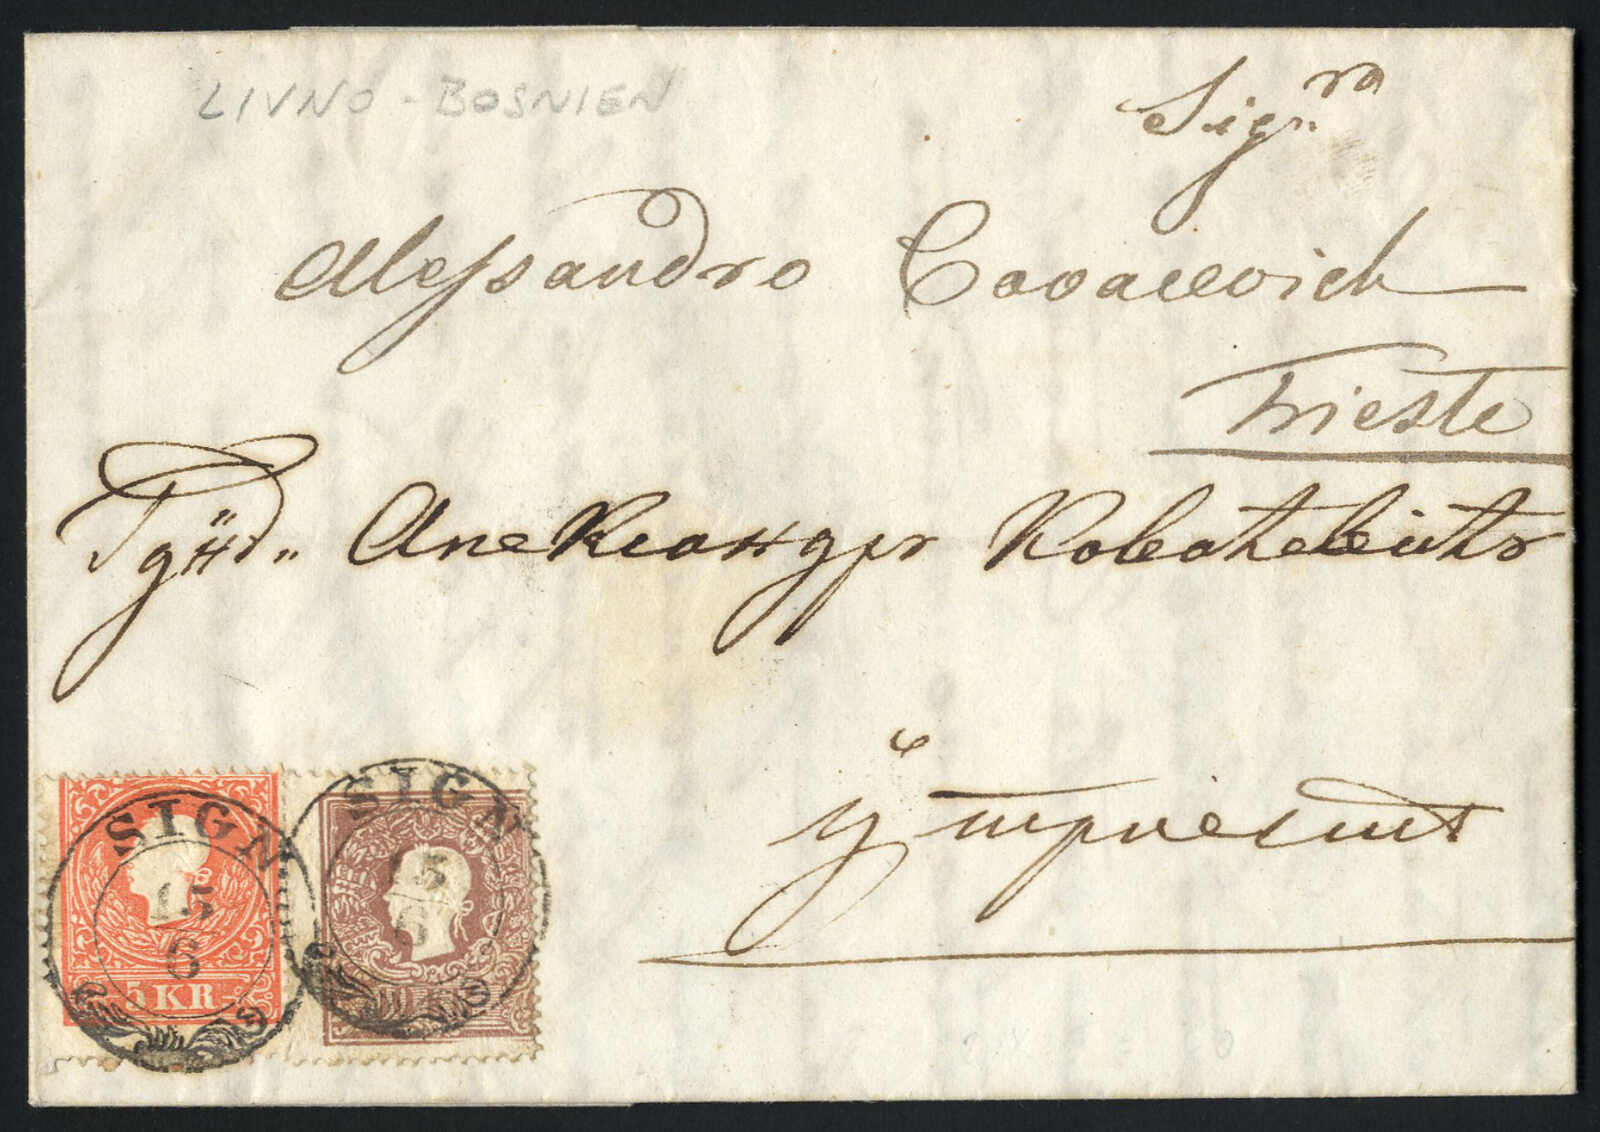 LIVNO - BOSNIEN
Sig.ra
Alessandro Covacevich
Trieste
Александръ Ковачевичъ
у Триестъ
SIGN
15
6
5 KR
SIGN
15
6
10 KR